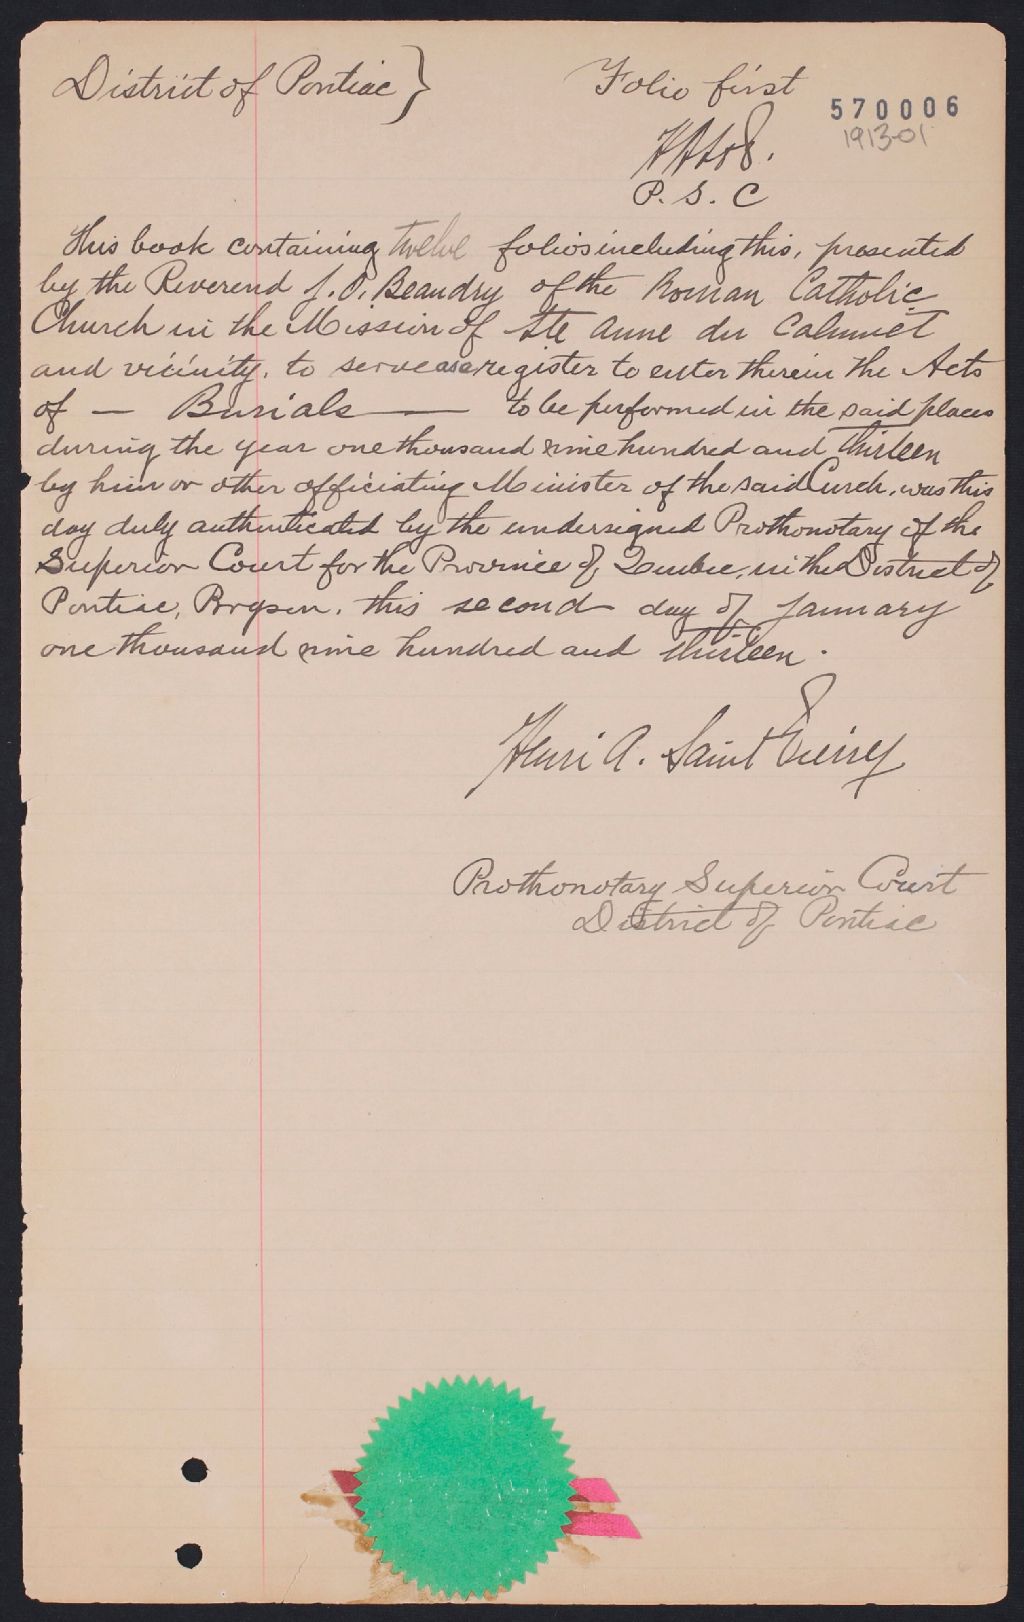 District of Pontiac }
Folio first
570006
1913-01
P. S. C
This book containing twelve folios including this, presented
by the Reverend J. O. Beaudry of the Roman Catholic
Church in the Mission of Ste Anne du Calumet
and vicinity, to serve as a register to enter therein the Acts
of — Burials — to be performed in the said places
during the year one thousand nine hundred and thirteen
by him or other officiating Minister of the said Curch, was this
day duly authenticated by the undersigned Prothonotary of the
Superior Court for the Province of Quebec, in the District of
Pontiac, Bryson, this second day of January
one thousand nine hundred and thirteen.
Henri A. Saint
Prothonotary Superior Court
District of Pontiac